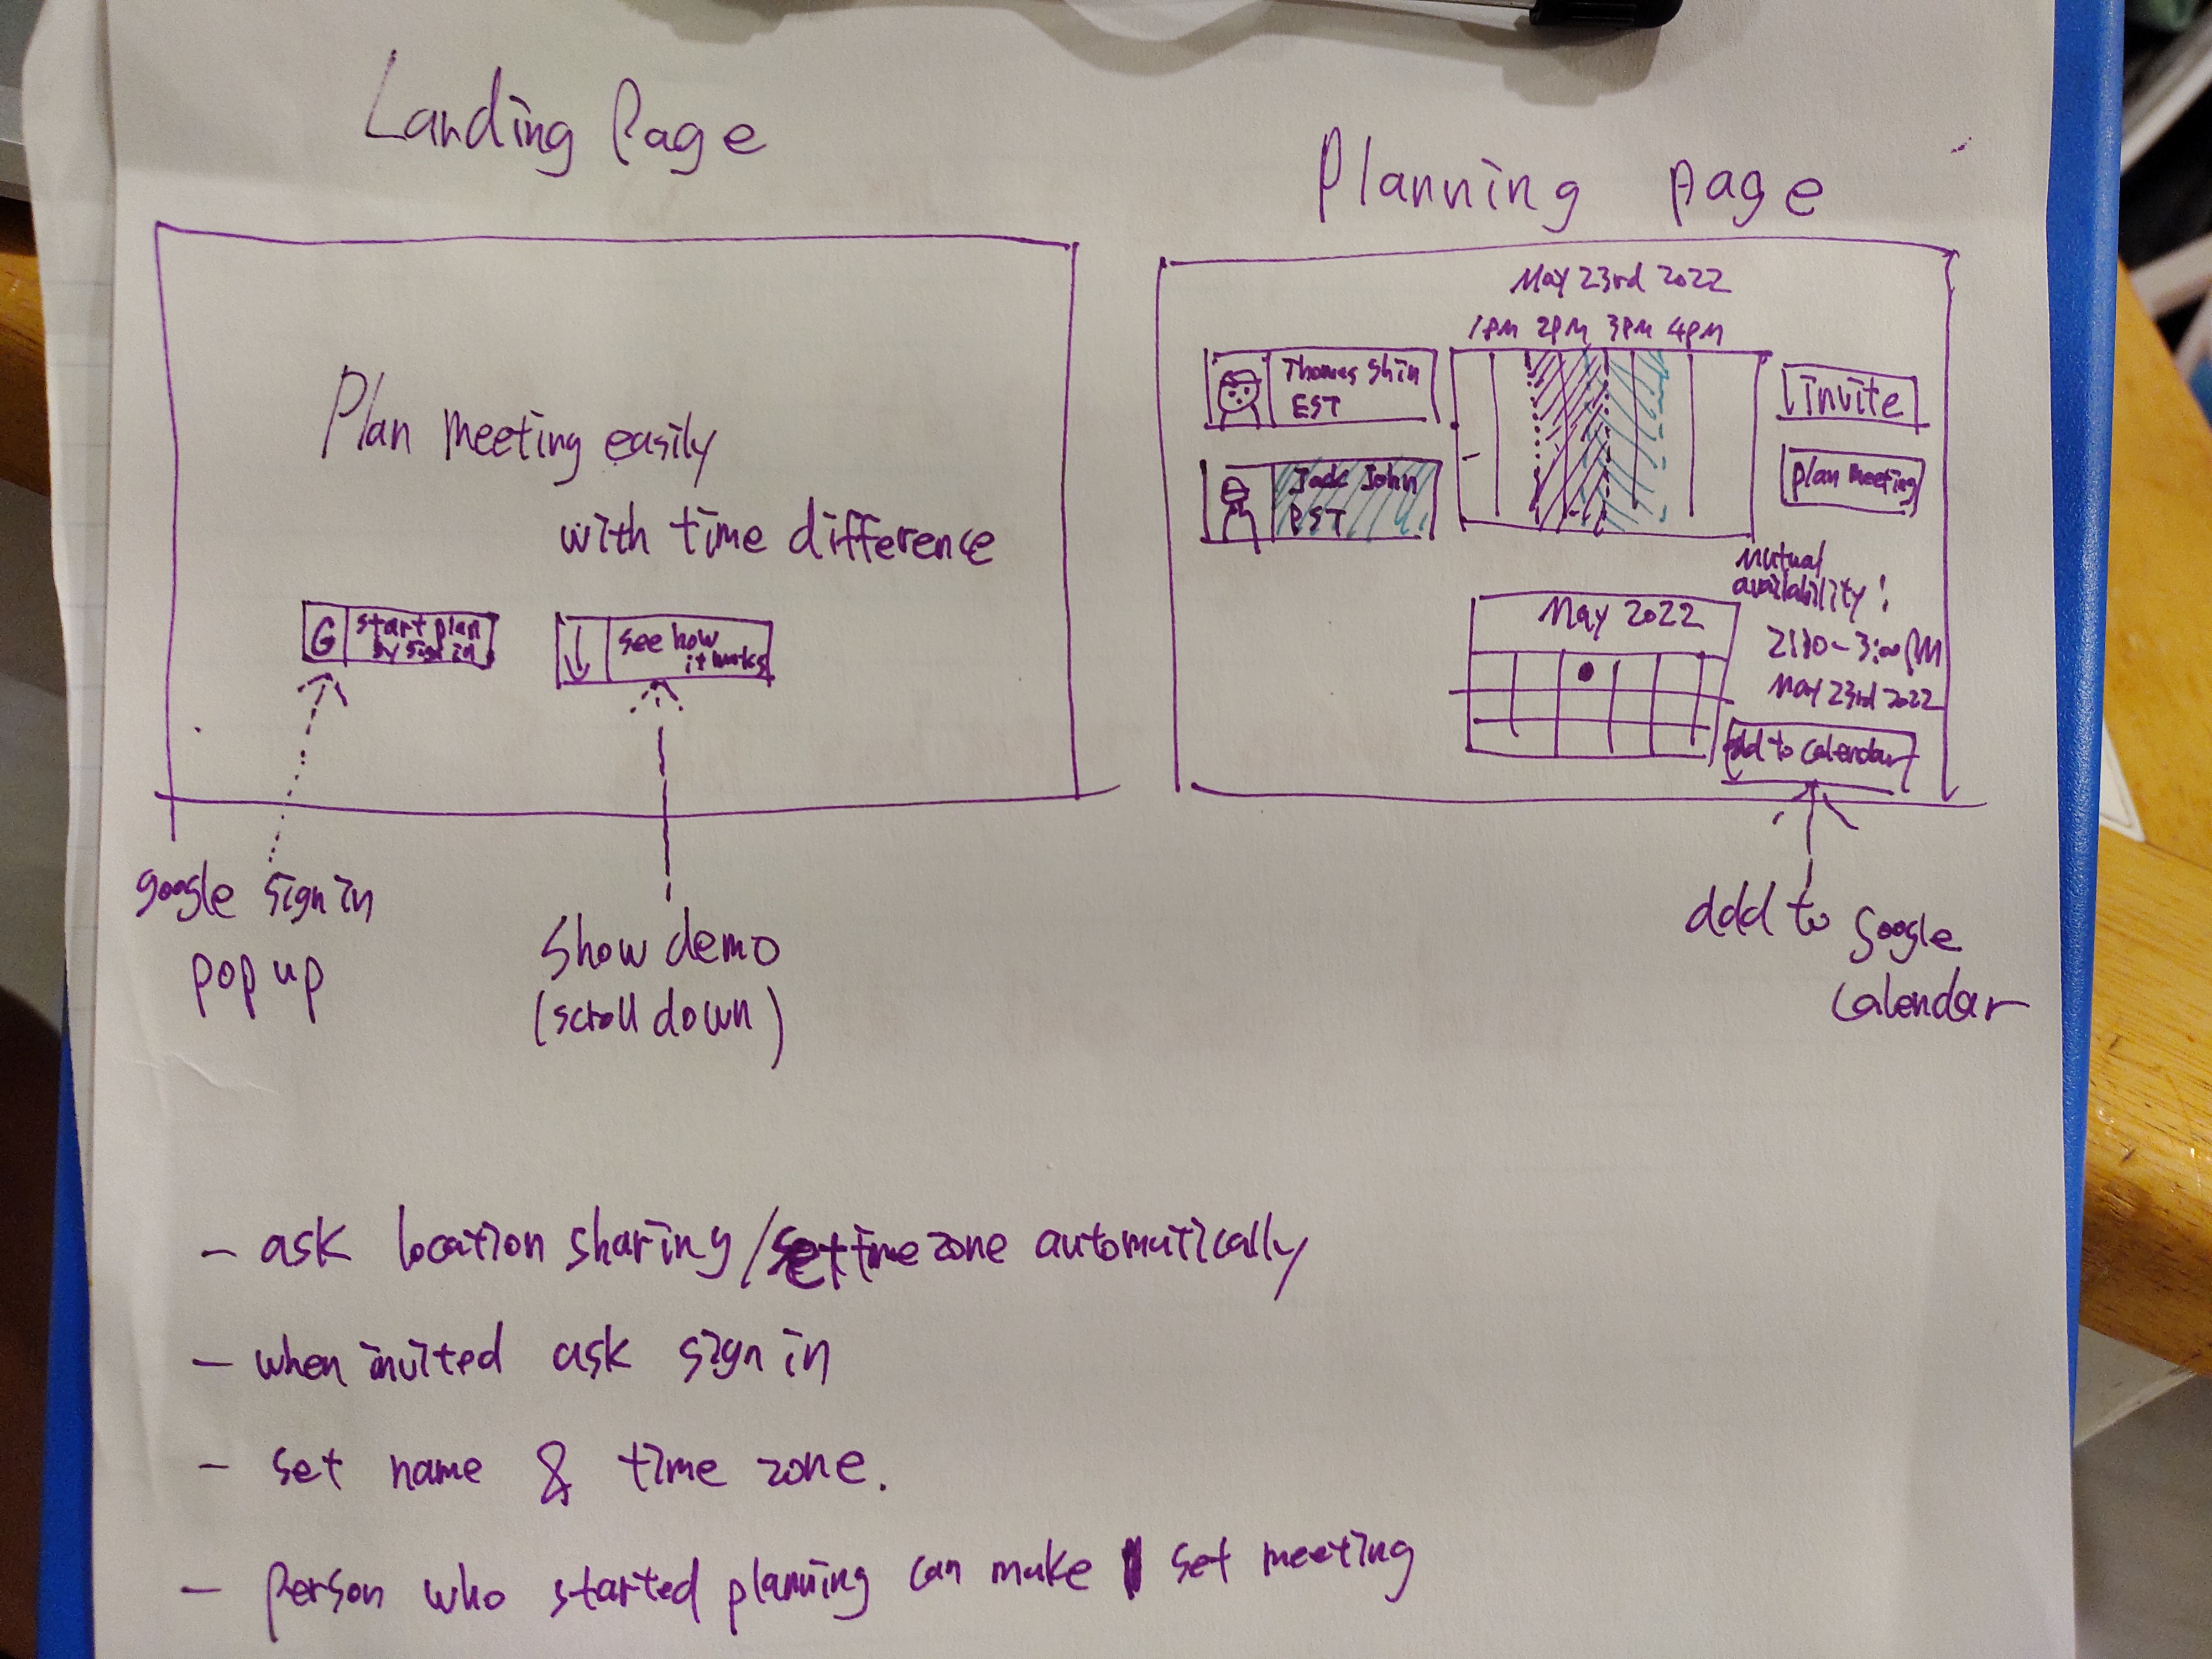 Landing Page
Plan meeting easily
with time difference
G
start plan
by sign in
see how
it works
google sign in
pop up
Show demo
(scroll down)
Planning page
May 23rd 2022
1PM 2PM 3PM 4PM
Thomas Shin
EST
John
PST
invite
plan meeting
mutual
availability:
3:00PM
May 23rd 2022
May 2022
add to calendar
add to google
calendar
- ask location sharing/set time zone automatically
- when invited ask sign in
- set name & time zone.
- person who started planning can make set meeting